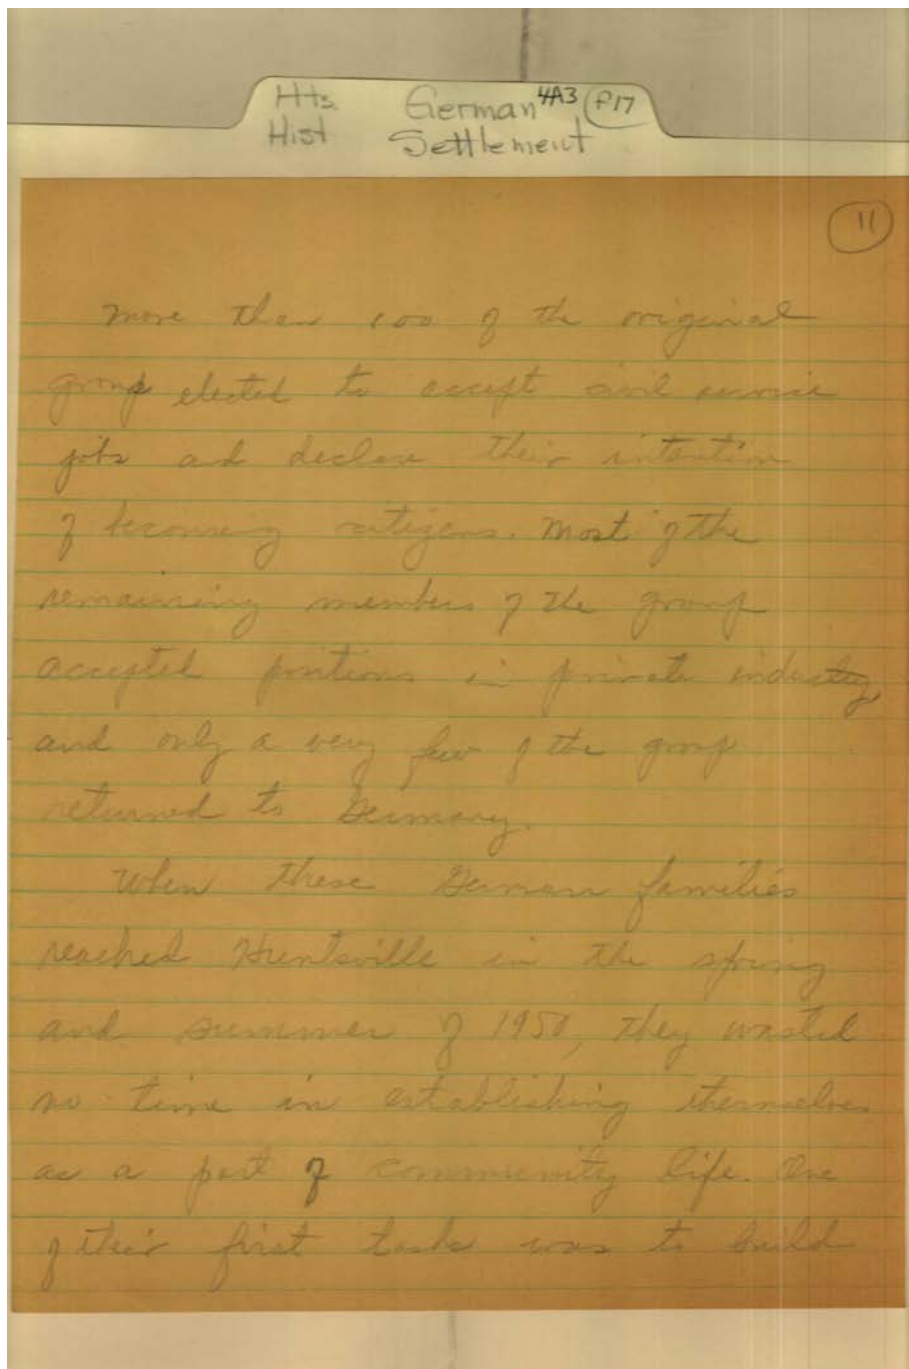 Hts. German 4A3 P17
Hist Settlement
11
More than 100 of the original
group elected to accept civil service
jobs and declare their intention
of becoming citizens. Most of the
remaining members of the group
accepted positions in private industry,
and only a very few of the group
returned to Germany.
When these German families
reached Huntsville in the spring
and summer of 1950, they wasted
no time in establishing themselves
as a part of community life. One
of their first tasks was to build